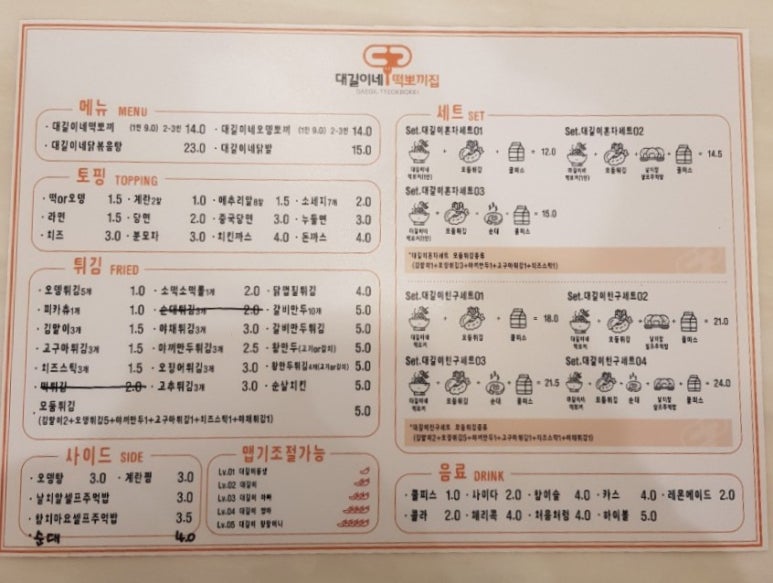 대길이네 떡볶끼집
DAEGIL TTEOKBOKKI
메뉴 MENU
· 대길이네떡뽀끼 (1인 9.0) 2-3인 14.0 · 대길이네오뎅뽀끼 (1인 9.0) 2-3인 14.0
· 대길이네닭볶음탕 23.0 · 대길이네닭발 15.0
토핑 TOPPING
· 떡or오뎅 1.5 · 계란2알 1.0 · 메추리알8알 1.5 · 소세지7개 2.0
· 라면 1.5 · 당면 2.0 · 중국당면 3.0 · 누들면 3.0
· 치즈 3.0 · 분모자 3.0 · 치킨까스 4.0 · 돈까스 4.0
튀김 FRIED
· 오뎅튀김5개 1.0 · 소떡소떡롤1개 2.0 · 닭껍질튀김 4.0
· 피카츄1개 1.0 · 순대튀김3개 2.0 · 갈비만두10개 5.0
· 김말이3개 1.5 · 야채튀김3개 3.0 · 갈비만두튀김 5.0
· 고구마튀김3개 1.5 · 야끼만두튀김3개 2.5 · 왕만두(고기or김치) 5.0
· 치즈스틱3개 1.5 · 오징어튀김3개 3.0 · 왕만두튀김4개(고기or김치) 5.0
떡튀김 2.0 · 고추튀김3개 3.0 · 순살치킨 5.0
모둠튀김 5.0
(김말이2+오뎅튀김5+야끼만두1+고구마튀김1+치즈스틱1+야채튀김1)
사이드 SIDE
· 오뎅탕 3.0 · 계란찜 3.0
· 날치알셀프주먹밥 3.0
· 참치마요셀프주먹밥 3.5
· 순대 4.0
맵기조절가능
Lv.01 대길이동생
Lv.02 대길이
Lv.03 대길이 아빠
Lv.04 대길이 엄마
Lv.05 대길이 할머니
세트 SET
Set.대길이혼자세트01
대길이네 떡뽀끼(1인) + 모둠튀김 + 쿨피스 = 12.0
Set.대길이혼자세트02
대길이네 떡뽀끼(1인) + 모둠튀김 + 날치알 셀프주먹밥 + 쿨피스 = 14.5
Set.대길이혼자세트03
대길이네 떡뽀끼(1인) + 모둠튀김 + 순대 + 쿨피스 = 15.0
*대길이혼자세트 모둠튀김종류
(김말이1+오뎅튀김3+야끼만두1+고구마튀김1+치즈스틱1)
Set.대길이친구세트01
대길이네 떡뽀끼 + 모둠튀김 + 쿨피스 = 18.0
Set.대길이친구세트02
대길이네 떡뽀끼 + 모둠튀김 + 날치알 셀프주먹밥 + 쿨피스 = 21.0
Set.대길이친구세트03
대길이네 떡뽀끼 + 모둠튀김 + 순대 + 쿨피스 = 21.5
Set.대길이친구세트04
대길이네 떡뽀끼 + 모둠튀김 + 순대 + 날치알 셀프주먹밥 + 쿨피스 = 24.0
*대길이친구세트 모둠튀김종류
(김말이2+오뎅튀김5+야끼만두1+고구마튀김1+치즈스틱1+야채튀김1)
음료 DRINK
· 쿨피스 1.0 · 사이다 2.0 · 참이슬 4.0 · 카스 4.0 · 레몬에이드 2.0
· 콜라 2.0 · 체리콕 4.0 · 처음처럼 4.0 · 하이볼 5.0